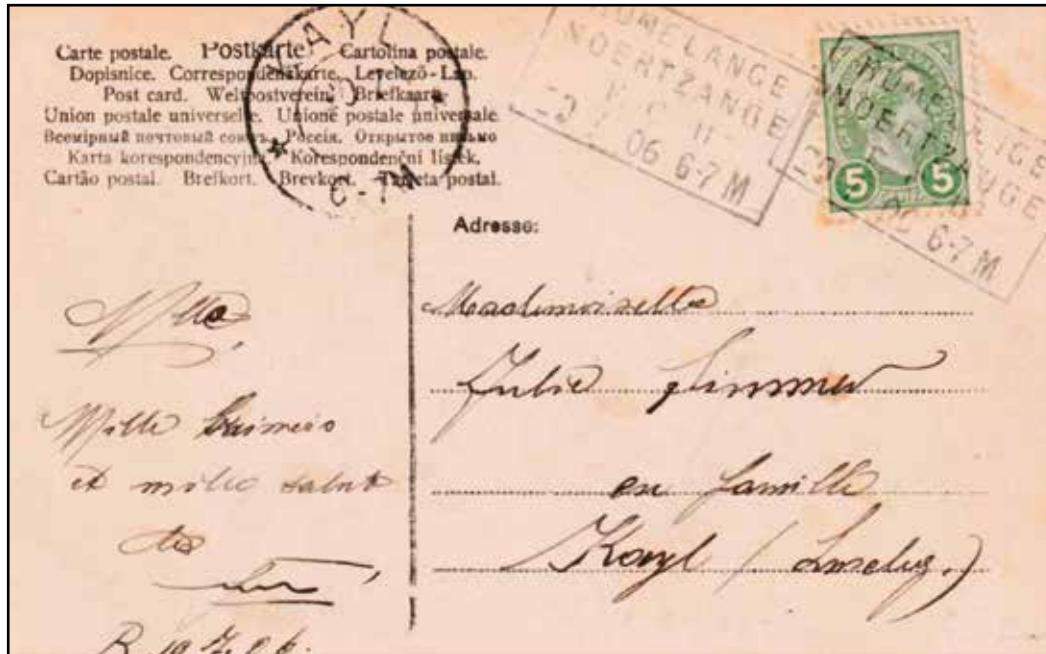 Carte postale. Postkarte Cartolina postale.
Dopisnice. Correspondenskarte. Levelező-Lap.
Post card. Weltpostverein. Briefkaart.
Union postale universelle. Unione postale universale
Всемірный почтовый союзъ. Россія. Открытое письмо
Karta korespondencyjna. Korespondenční lístek.
Cartão postal. Brefkort. Brevkort. Tarjeta postal.
KAYL
6-7M
RUMELANGE
NOERTZANGE
06 6-7 M
RUMELANGE
NOERTZANGE
06 6-7 M
5 5
Adresse:
Mademoiselle
Julie Simmer
en famille
Kayl / Luxbg.)
Mlle,
Mille
et mille saluts
des